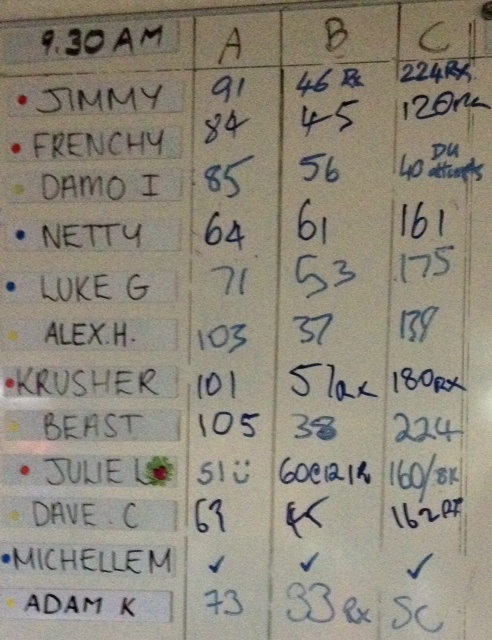 9.30 AM A B C
JIMMY 91 46 Rx 224 RX
FRENCHY 84 45 120 RX
DAMO I 85 56 40 DU attempts
NETTY 64 61 161
LUKE G 71 53 175
ALEX.H. 103 37 139
KRUSHER 101 51 RX 180 RX
BEAST 105 38 224
JULIE L 51 160/8K
DAVE.C 69 162 RX
MICHELLE M ✓ ✓ ✓
ADAM K 73 33 Rx SC